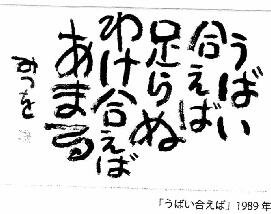 うばい
合えば
足らぬ
わけ合えば
あまる
みつを
「うばい合えば」1989年